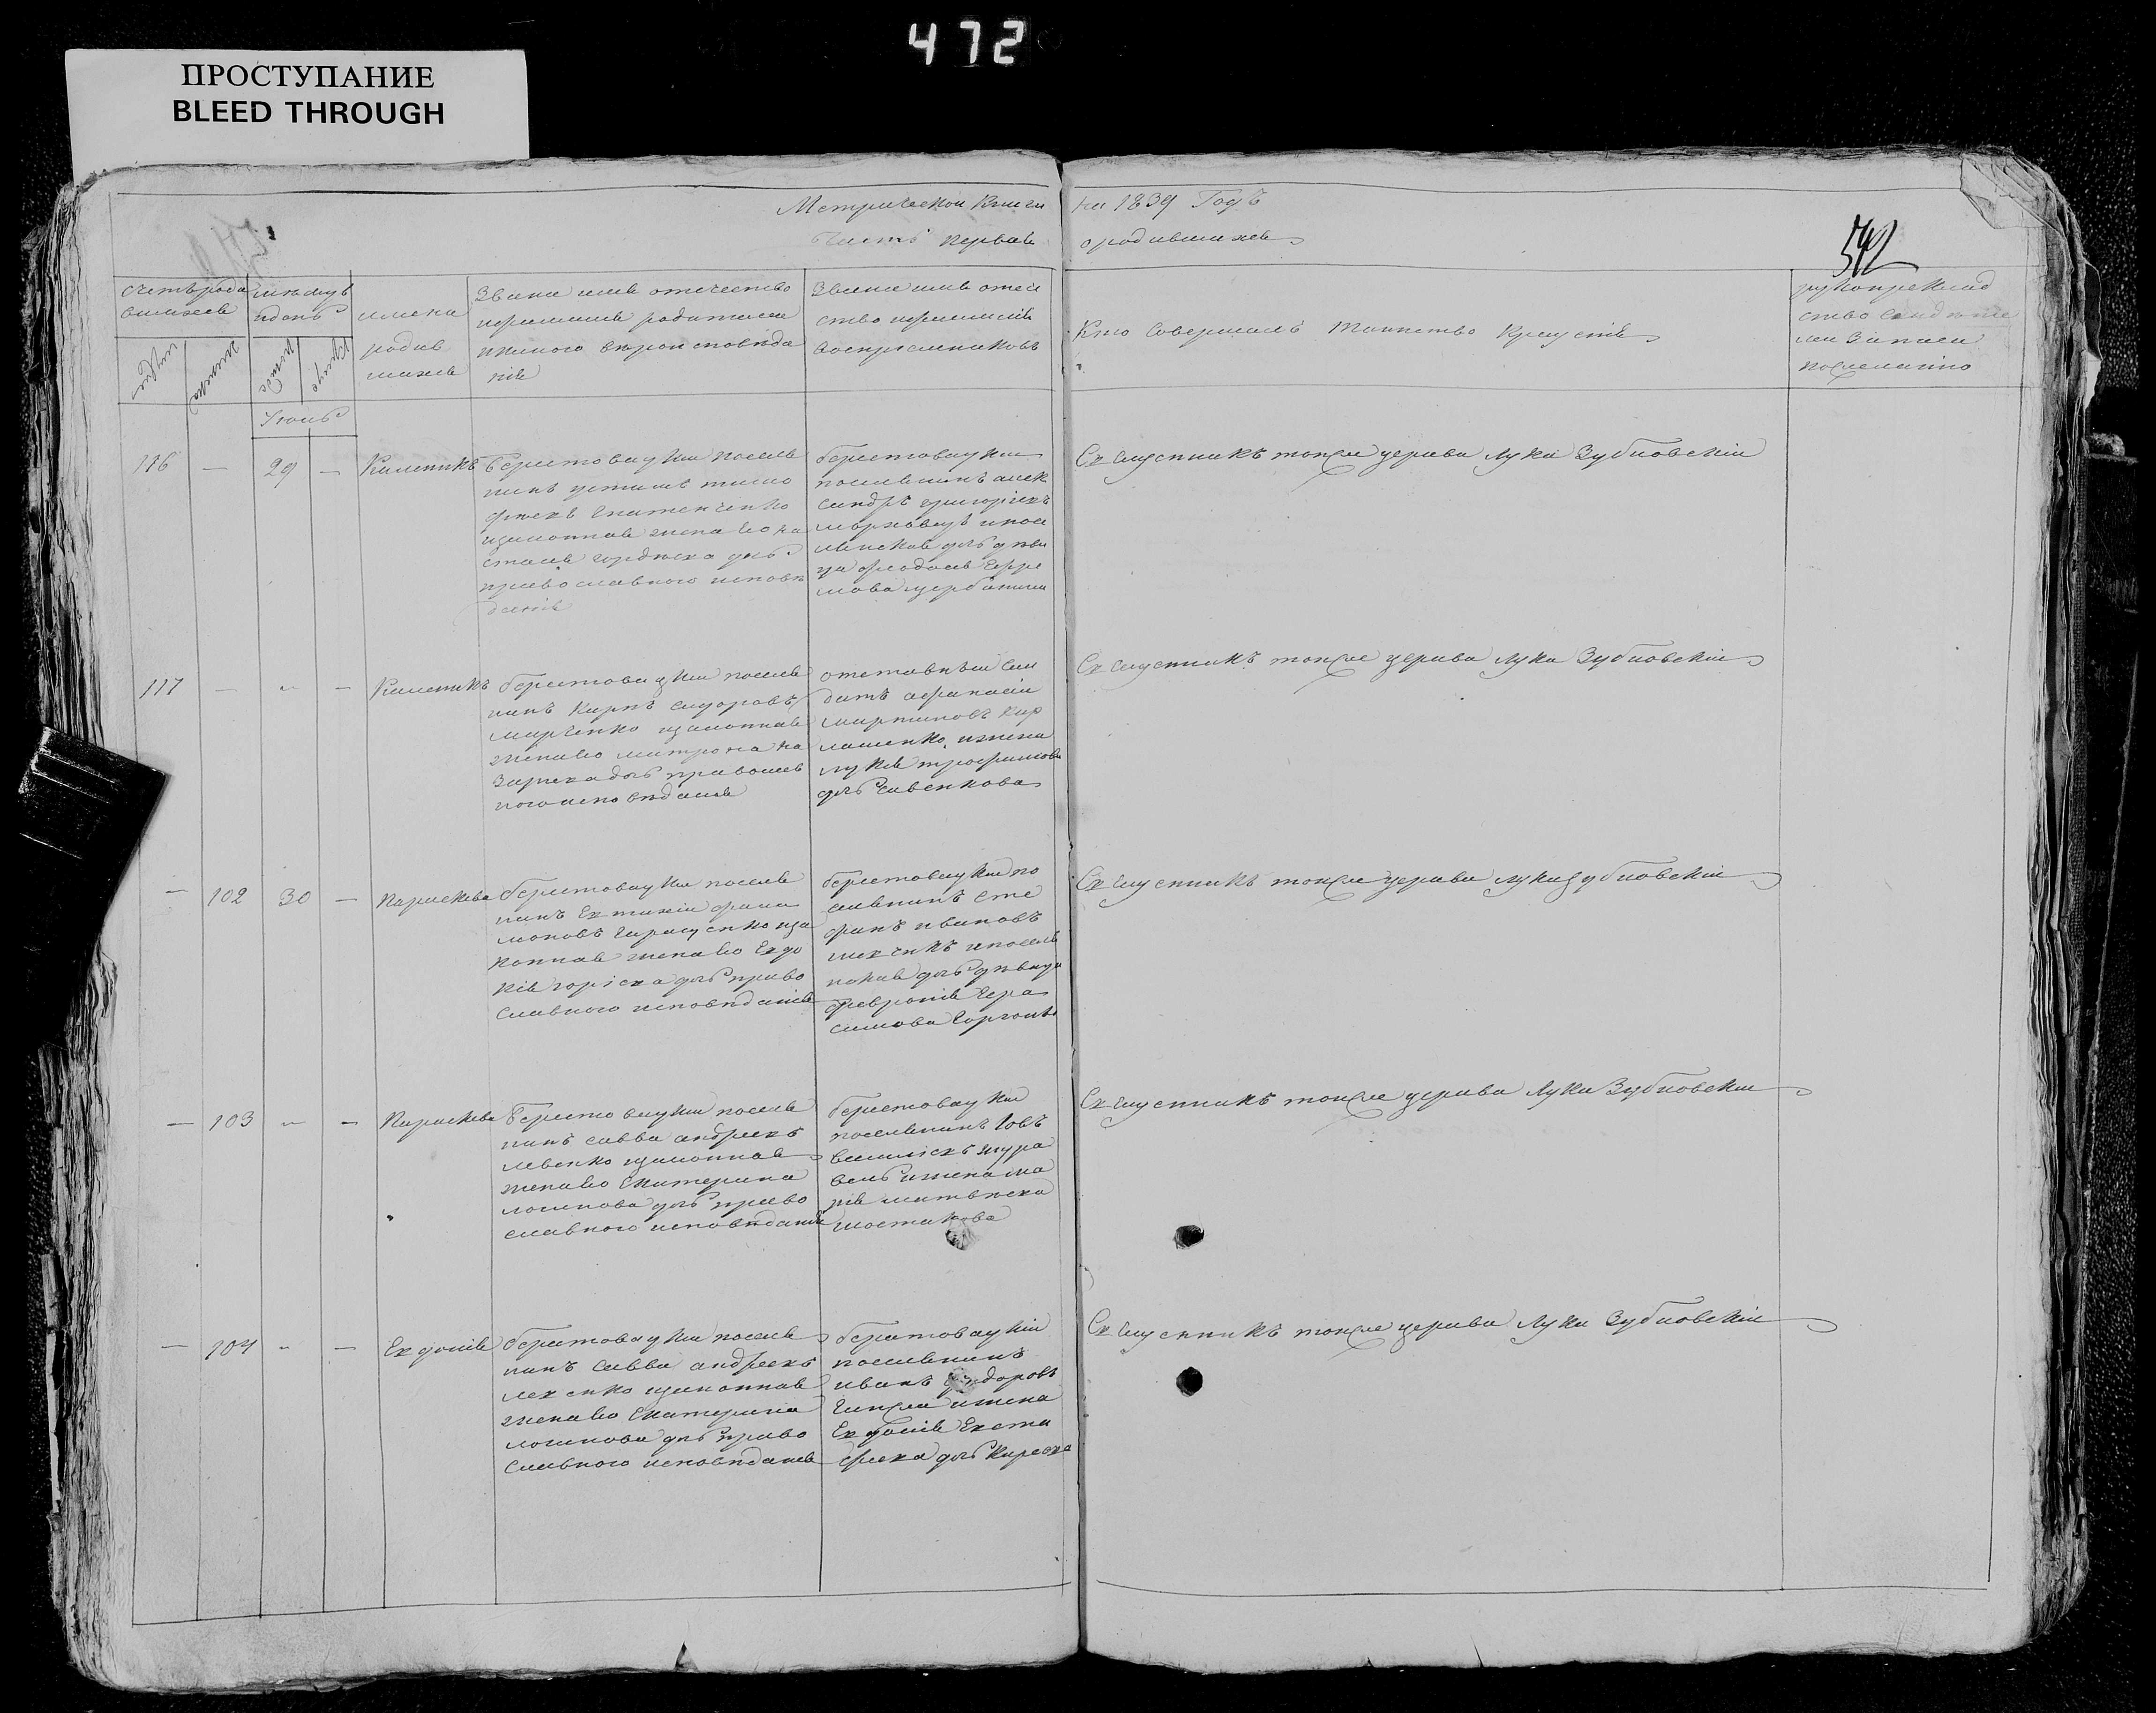 472
ПРОСТУПАНИЕ
BLEED THROUGH
Метрической Книги на 1839 Годъ
Часть первая о родившихся
542
Счетъ роди
вшихся
мужес
женска
месяцъ
и день
Имена
родив
шихся
Званіе имя отечество
и фамилія родителей
и какого вероисповеда
нія
Званіе имя отече
ство и фамилія
воспріемниковъ
Кто Совершалъ Таинство Крещенія
рукоприклад
ство свидете
лей записи
по желанію
Іюнь
116 — 29 — Каленикъ
Берестовацкій поселя
нинъ
законная жена его
православного испове
данія
берестовацкій
поселянинъ алек
сандръ григоріевъ
и посе
лянская дочь деви
ца феодосія Ефре
мова щербинина
Священникъ тойже церкви Лука Зубковскій
117 — „ — Каленикъ
берестовацкій поселя
нинъ Карпъ сидоровъ
марченко и законная
жена его матрона на
зарьева дочь православ
ного исповеданія
отставный сол
датъ афанасій
мартиновъ кир
лашенко и жена
лукія трофимова
дочь савенкова
Священникъ тойже церкви Лука Зубковскій
— 102 30 — Параскева
берестовацкій поселя
нинъ Евтихій фили
моновъ геращенко и за
конная жена его Евдо
кія горіева дочь право
славного исповеданія
берестовацкій по
селянинъ сте
фанъ ивановъ
шевчикъ и поселя
нская дочь девица
февронія Гера
симова
Священникъ тойже церкви лука зубковскій
— 103 „ — Параскева
Берестовацкій поселя
нинъ савва андреевъ
левенко и законная
жена его Екатерина
логинова дочь право
славного исповеданія
берестовацкій
поселянинъ Іовъ
василіевъ жура
вель и жена ма
рія матвеева
шостакова
Священникъ тойже церкви Лука Зубковскій
— 104 „ — Евдокія
берестовацкій поселя
нинъ савва андреевъ
левенко и законная
жена его Екатерина
логинова дочь право
славного исповеданія
берестовацкій
поселянинъ
иванъ
и жена
Евдокія Евста
фіева дочь
Священникъ тойже церкви Лука Зубковскій